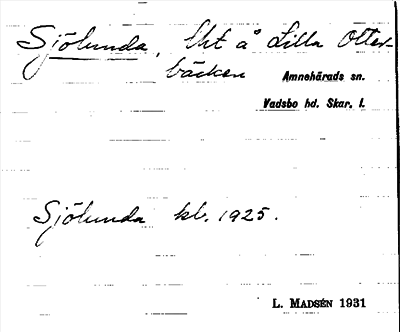 Sjölunda, lht å Lilla Otter-
bäcken Amnehärads sn.
Vadsbo hd. Skar. l.
Sjölunda kl. 1925.
L. MADSÉN 1931